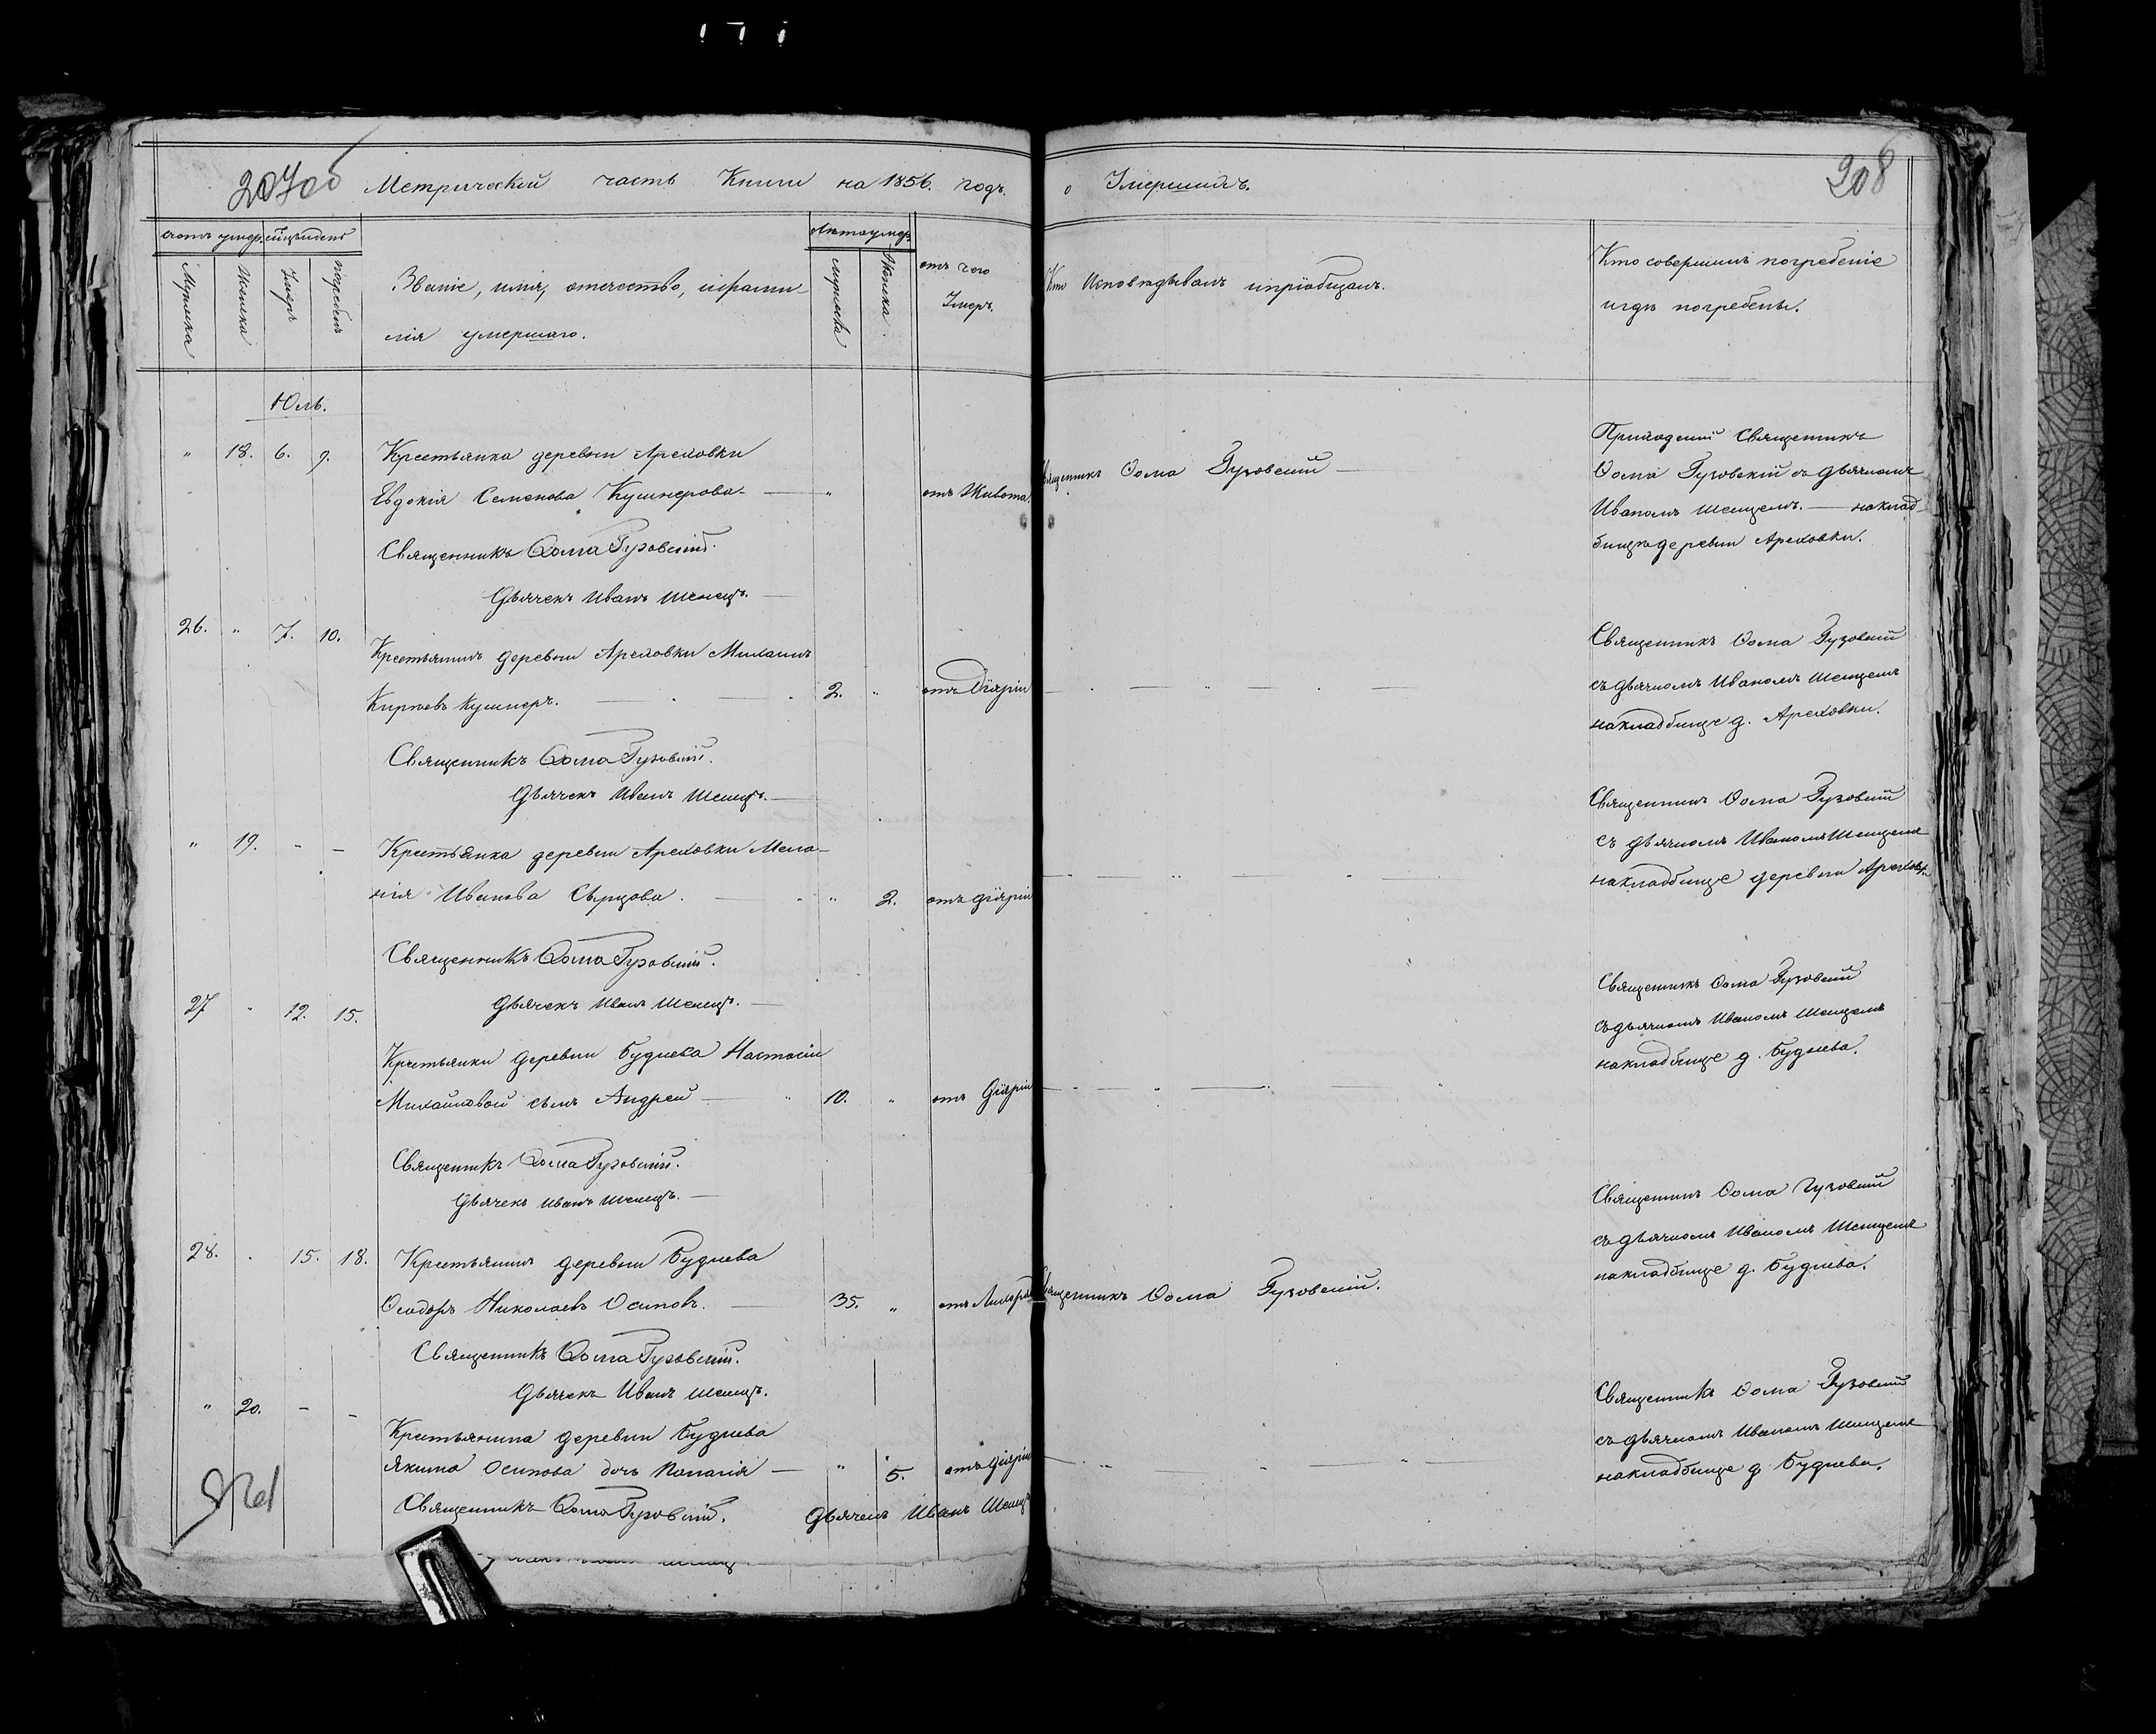 207об Метрической часть Книги на 1856. годъ.
о Умершихъ.
208
счетъ умер.
Мужеска
Женска
Умеръ
погребенъ
Званіе, имя, отечество, и фами-
лія умершаго.
Лѣта умер.
мужеска
Женска.
отъ чего
Умеръ.
Кто Исповѣдывалъ и пріобщалъ.
Кто совершилъ погребеніе
и гдѣ погребены.
Юль.
" 18. 6. 9. Крестьянка деревни Ареховки
Евдокія Семенова Кушнерова - " отъ Живота.
Священникъ Фома Гузовскій.
Дьячекъ Иванъ Шенецъ.
Священникъ Фома Гузовскій —
Приходскій Священникъ
Фома Гузовскій съ дьячкомъ
Иваномъ Шенцемъ. — на клад-
бищѣ деревни Ареховки.
26. " 7. 10.
Крестьянинъ деревни Ареховки Михаилъ
Кушнеръ. 2. " отъ Діяріи
Священникъ Фома Гузовскій.
Дьячекъ Иванъ Шенецъ.
Священникъ Фома Гузовскій
съ дьячкомъ Иваномъ Шенцемъ
на кладбище д. Ареховки.
" 19. - - Крестьянка деревни Ареховки Мела-
нія Иванова Сырцова. " 2. отъ діяріи
Священникъ Фома Гузовскій.
Дьячекъ Иванъ Шенецъ.
Священникъ Фома Гузовскій
съ дьячкомъ Иваномъ Шенцемъ
на кладбище деревни Ареховки
27 " 12. 15.
Крестьянки деревни Буднева Настасіи
Михайловой сынъ Андрей 10. " отъ Діяріи
Священникъ Фома Гузовскій.
Дьячекъ Иванъ Шенецъ.
Священникъ Фома Гузовскій
съ дьячкомъ Иваномъ Шенцемъ
на кладбище д. Буднева.
28. . 15. 18. Крестьянинъ деревни Буднева
Феодоръ Николаевъ Осиповъ. 35. "
Священникъ Фома Гузовскій.
Дьячекъ Иванъ Шенецъ.
Священникъ Фома Гузовскій.
Священникъ Фома Гузовскій
съ дьячкомъ Иваномъ Шенцемъ
на кладбище д. Буднева.
" 20. - -
Крестьянина деревни Буднева
Якима Осипова дочь " 5. отъ діяріи
Священникъ Фома Гузовскій. Дьячекъ Иванъ Шенецъ
Священникъ Фома Гузовскій
съ дьячкомъ Иваномъ Шенцемъ
на кладбище д. Буднева.